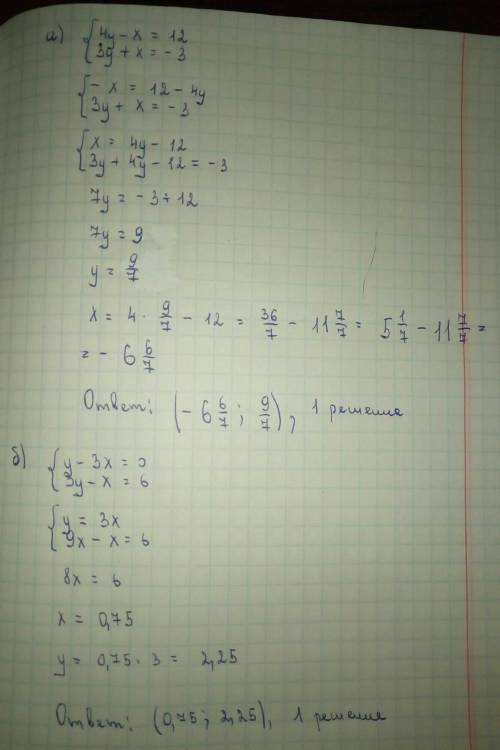 а) { 4y - x = 12
3y + x = - 3
{ - x = 12 - 4y
3y + x = - 3
{ x = 4y - 12
3y + 4y - 12 = - 3
7y = - 3 + 12
7y = 9
y = 9/7
x = 4 · 9/7 - 12 = 36/7 - 11 7/7 = 5 1/7 - 11 7/7 =
= - 6 6/7
Ответ: (- 6 6/7 ; 9/7), 1 решение
б) { y - 3x = 0
3y - x = 6
{ y = 3x
9x - x = 6
8x = 6
x = 0,75
y = 0,75 · 3 = 2,25
Ответ: (0,75 ; 2,25), 1 решение